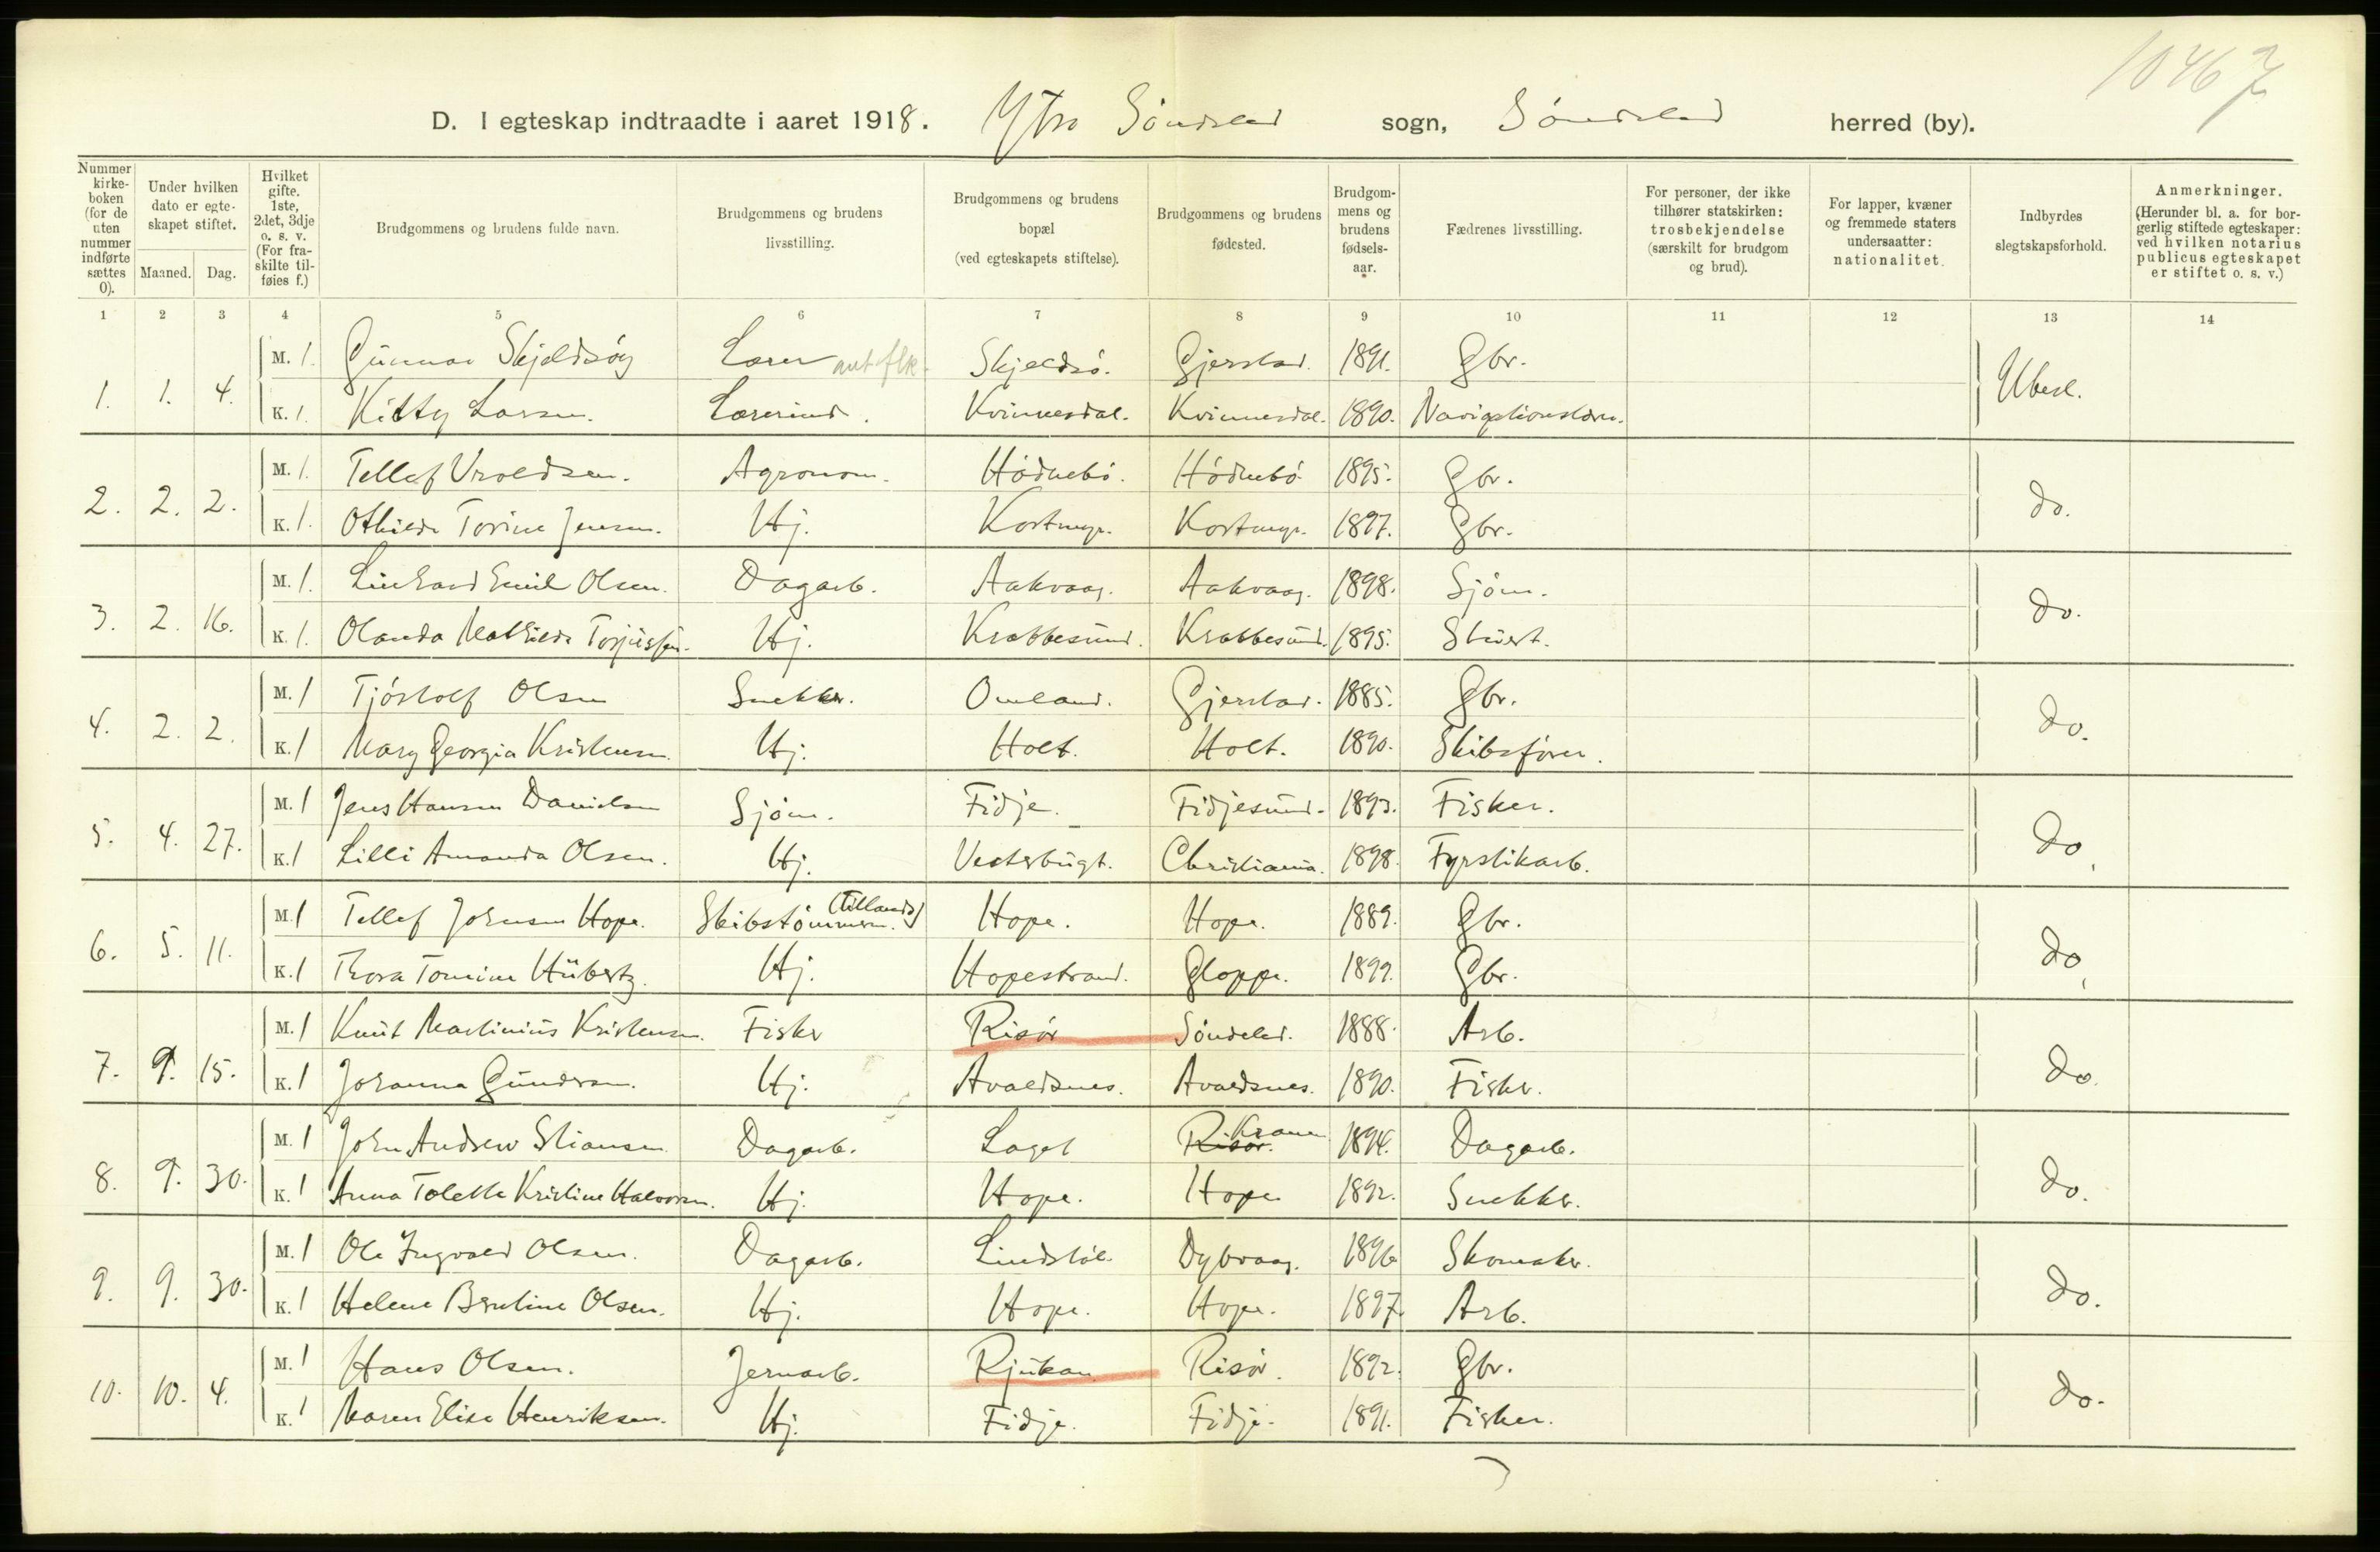 10467
D. I egteskap indtraadte i aaret 1918. Ytre Söndeled sogn, Söndeled herred (by).
Nummer kirke- boken (for de uten nummer indførte sættes 0).
Under hvilken dato er egte- skapet stiftet.
Maaned. Dag.
Hvilket gifte. 1ste, 2det, 3dje o. s. v. (For fra- skilte til- føies f.)
Brudgommens og brudens fulde navn.
Brudgommens og brudens livsstilling.
Brudgommens og brudens bopæl (ved egteskapets stiftelse).
Brudgommens og brudens fødested.
Brudgom- mens og brudens fødsels- aar.
Fædrenes livsstilling.
For personer, der ikke tilhører statskirken: trosbekjendelse (særskilt for brudgom og brud).
For lapper, kvæner og fremmede staters undersaatter: nationalitet.
Indbyrdes slegtskapsforhold.
Anmerkninger. (Herunder bl. a. for bor- gerlig stiftede egteskaper: ved hvilken notarius publicus egteskapet er stiftet o. s. v.)
1 2 3 4 5 6 7 8 9 10 11 12 13 14
M. 1. Gunnar Skjeldsög Lærer Skjeldsö. Gjerstad. 1891. Gbr.
1. 1. 4. Ubesl.
K. 1. Kitty Larsen. Lærerinde. Kvinnesdal. Kvinnesdal. 1890. Navigationslærer.
M. 1. Tellef Vroldsen. Agronom. Hödnebö. Hödnebö 1895. Gbr.
2. 2. 2. do.
K. 1. Othilde Torine Jensen. Hj. Kortmyr. Kortmyr. 1897. Gbr.
M. 1. Linhard Emil Olsen. Dagarb. Aakvaag. Aakvaag. 1898. Sjöm.
3. 2. 16. do.
K. 1. Olanda Mathilde Torjussen. Hj. Krabbesund. Krabbesund. 1895. Stuert.
M. 1 Tjöstolf Olsen Snekker. Omland. Gjerstad. 1885. Gbr.
4. 2. 2. do.
K. 1 Mary Georgia Kristensen. Hj. Holt. Holt. 1890. Skibsförer.
M. 1 Jens Hansen Danielsen Sjöm. Fidje. Fidjesund. 1893. Fisker.
5. 4. 27. do.
K. 1 Lilli Amanda Olsen. Hj. Vesterbugt. Christiania. 1898. Fyrstikarb.
M. 1 Tellef Johnsen Hope. Skibstömmerm. (tillands) Hope. Hope. 1889. Gbr.
6. 5. 11. do.
K. 1 Thora Tomine Hübertz. Hj. Hopestrand. Gloppe. 1899. Gbr.
M. 1 Knut Martinius Kristensen. Fisker Risör Söndeled. 1888. Arb.
7. 9. 15. do.
K. 1 Johanna Gundersen. Hj. Avaldsnes. Avaldsnes. 1890. Fisker.
M. 1 John Andrew Stiansen Dagarb. Laget Risör. Kranen 1894. Dagarb.
8. 9. 30. do.
K. 1 Anna Tolette Kristine Halvorsen. Hj. Hope. Hope 1892. Snekker.
M. 1 Ole Ingvald Olsen. Dagarb. Lindstöl. Dybvaag. 1896 Skomaker.
9. 9. 30. do.
K. 1 Helene Berntine Olsen. Hj. Hope. Hope. 1897. Arb.
M. 1 Hans Olsen. Jernarb. Rjukan. Risör. 1892. Gbr.
10. 10. 4. do.
K. 1 Maren Elise Henriksen. Hj. Fidje. Fidje. 1891. Fisker.